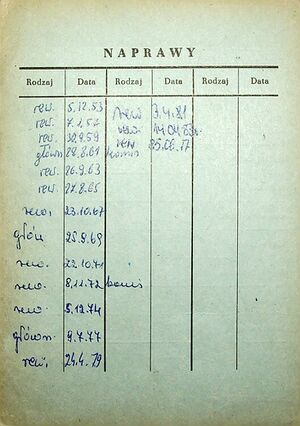 NAPRAWY
Rodzaj Data Rodzaj Data Rodzaj Data
rew. 5.12.53 rew. 3.4.81
rew. 7.1.57 rew. 14.04.83r.
rew. 30.9.59 rew.
główn. 28.8.61 komis
rew. 26.9.63
rew. 27.8.65
rew. 23.10.67
główn. 25.9.69
rew. 22.10.71
rew. 8.11.72 komis
rew. 5.12.74
główn. 9.7.77
rew. 24.4.79